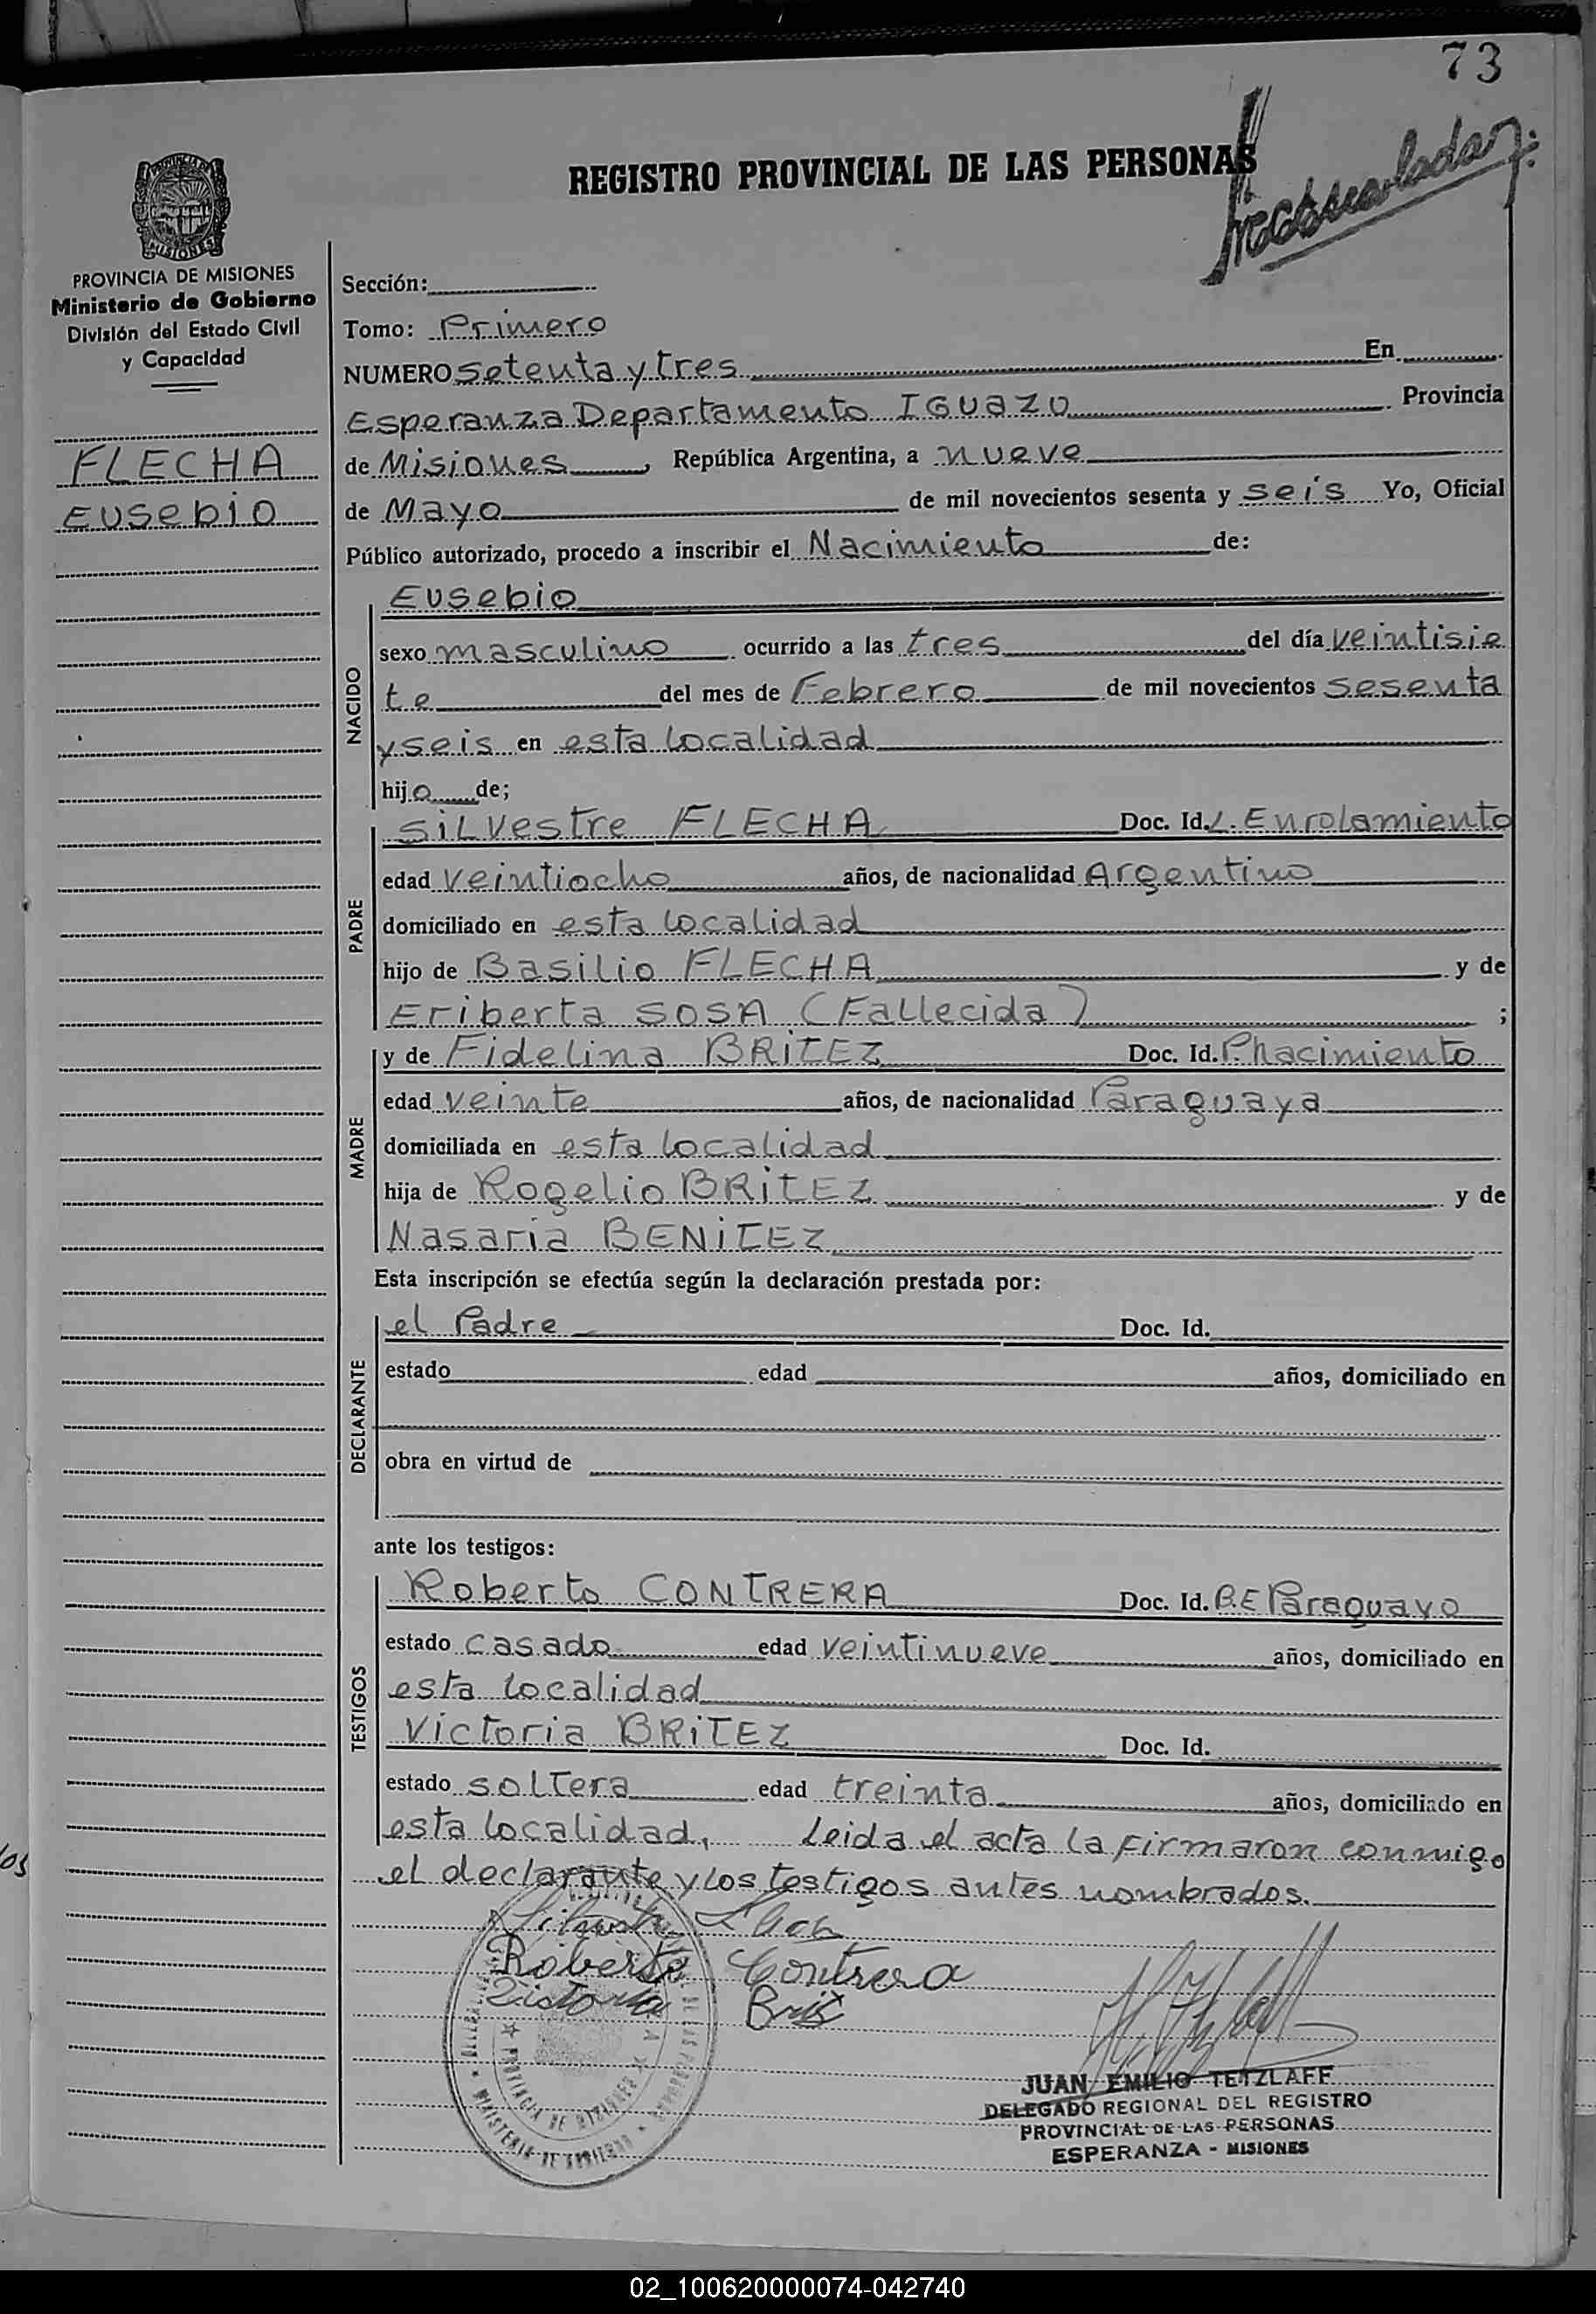 73
REGISTRO PROVINCIAL DE LAS PERSONAS
PROVINCIA DE MISIONES
Ministerio de Gobierno
División del Estado Civil
y Capacidad
FLECHA
Eusebio
Sección:
Tomo: Primero
NUMERO Setenta y tres En
Esperanza Departamento IGUAZU Provincia
de Misiones, República Argentina, a nueve
de Mayo de mil novecientos sesenta y seis Yo, Oficial
Público autorizado, procedo a inscribir el Nacimiento de:
NACIDO
Eusebio
sexo masculino ocurrido a las tres del día veintisie
te del mes de Febrero de mil novecientos sesenta
y seis en esta localidad
hijo de;
PADRE
Silvestre FLECHA Doc. Id. L. Enrolamiento
edad veintiocho años, de nacionalidad Argentino
domiciliado en esta localidad
hijo de Basilio FLECHA y de
Eriberta SOSA (Fallecida) ;
MADRE
y de Fidelina BRITEZ Doc. Id. P. nacimiento
edad veinte años, de nacionalidad Paraguaya
domiciliada en esta localidad
hija de Rogelio BRITEZ y de
Nasaria BENITEZ
Esta inscripción se efectúa según la declaración prestada por:
DECLARANTE
el Padre Doc. Id.
estado edad años, domiciliado en
obra en virtud de
ante los testigos:
TESTIGOS
Roberto CONTRERA Doc. Id. B.E Paraguayo
estado casado edad veintinueve años, domiciliado en
esta localidad
Victoria BRITEZ Doc. Id.
estado soltera edad treinta años, domiciliado en
esta localidad, Leida el acta la firmaron conmigo
el declarante y los testigos antes nombrados.
Roberto Contrera
JUAN EMILIO TETZLAFF
DELEGADO REGIONAL DEL REGISTRO
PROVINCIAL DE LAS PERSONAS
ESPERANZA - MISIONES
02_100620000074-042740